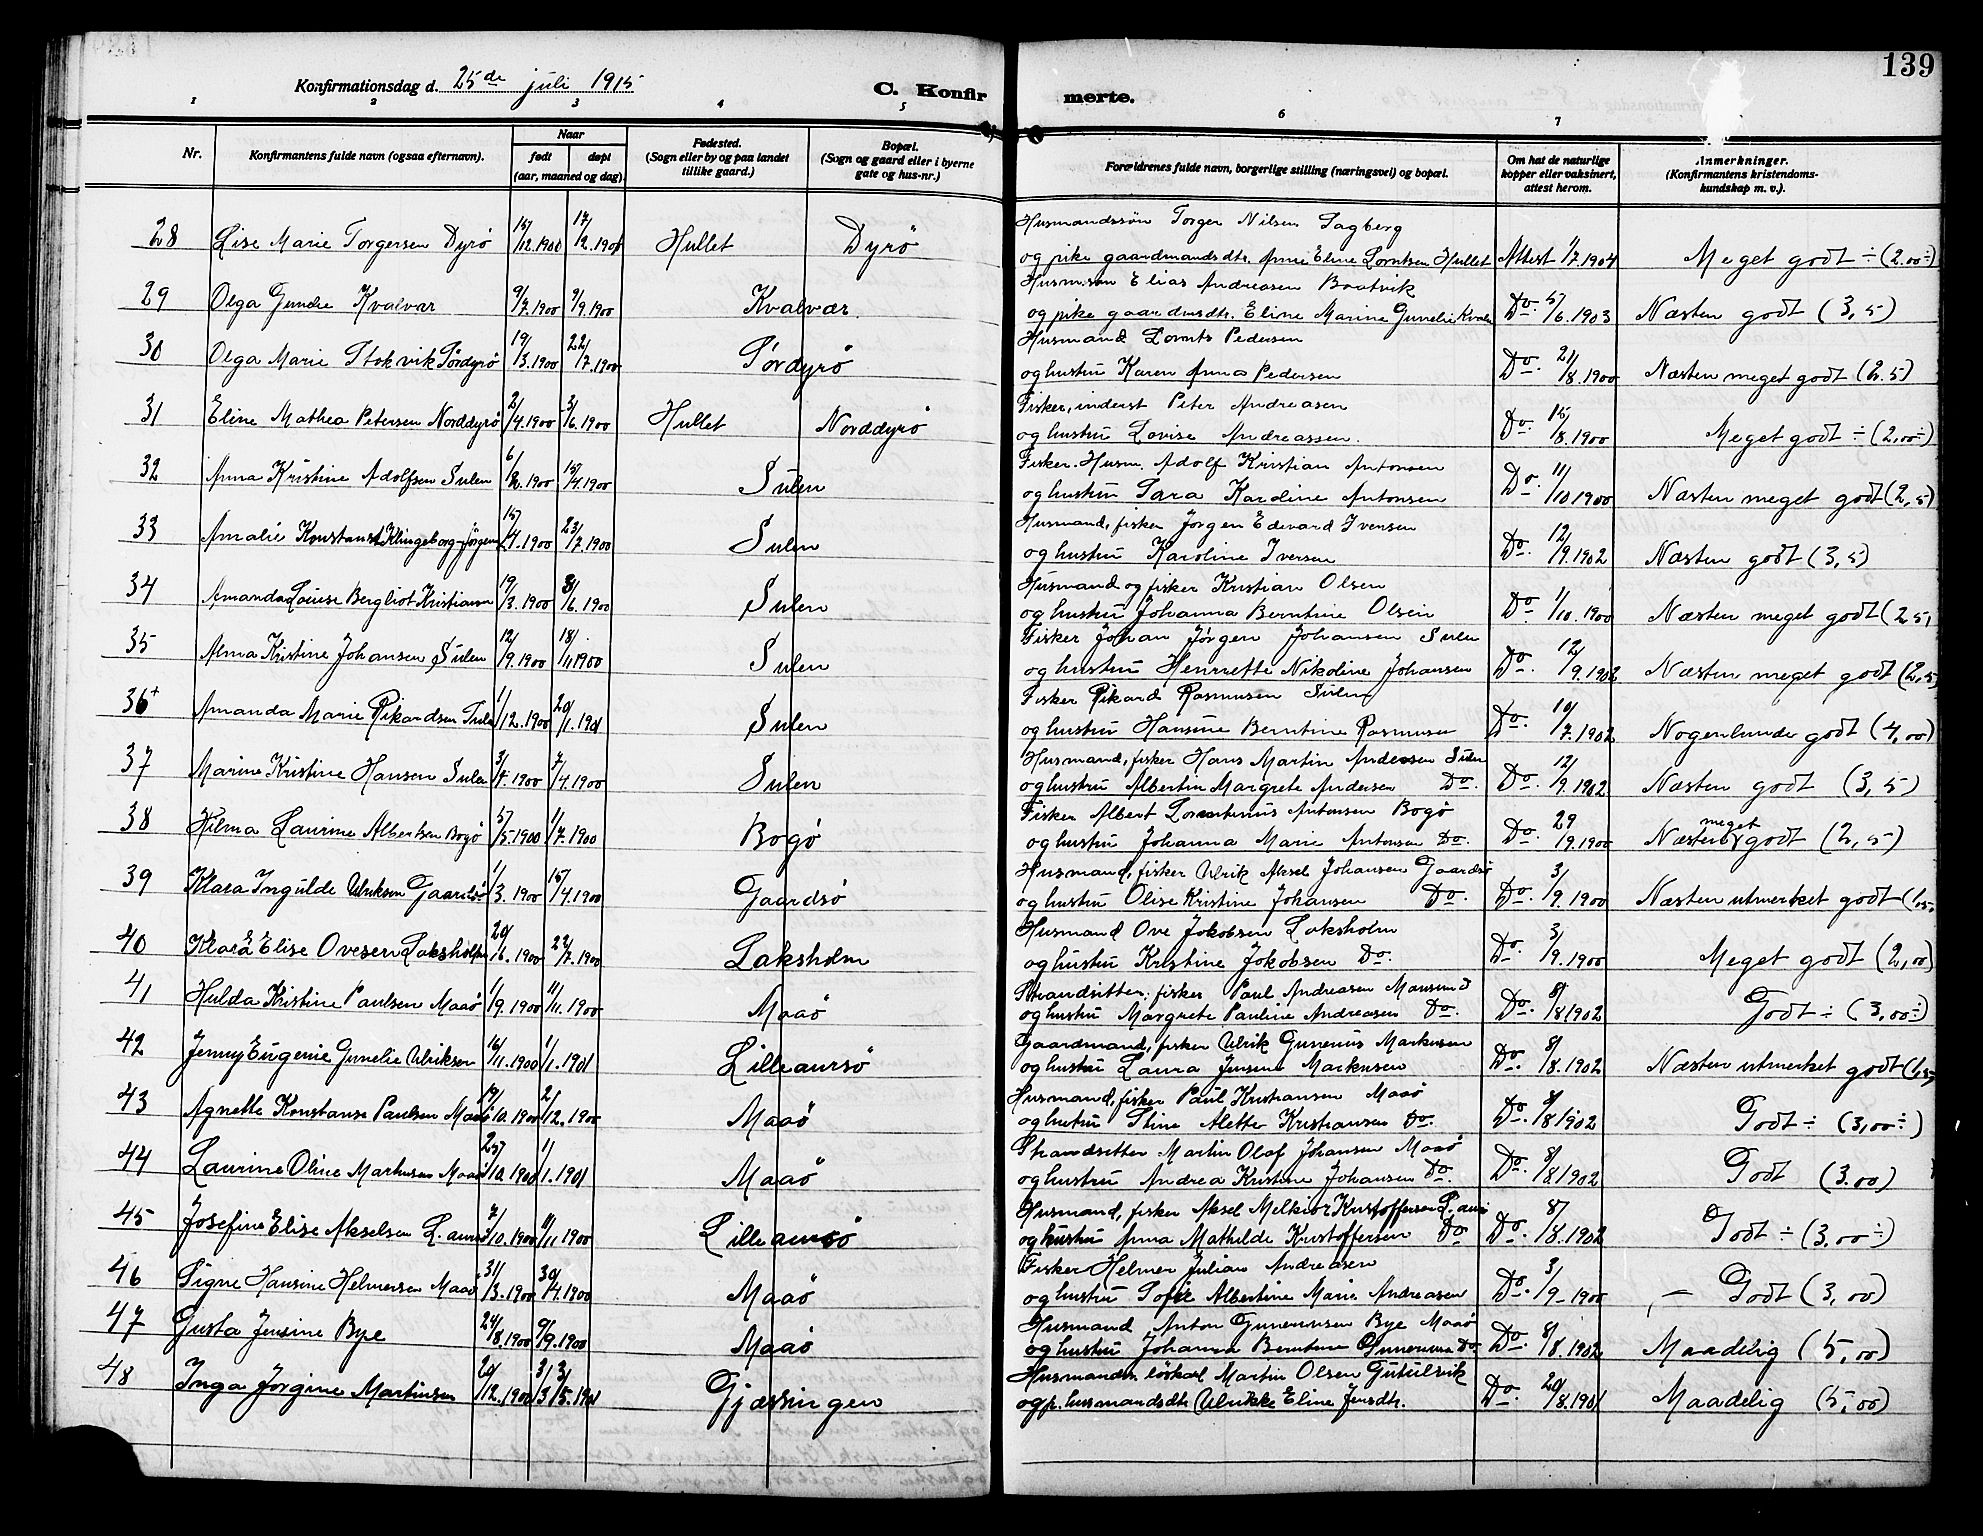 139
Konfirmationsdag d. 25de juli 1915
C. Konfir merte.
1 2 3 4 5 6 7
Nr.
Konfirmantens fulde navn (ogsaa efternavn).
Naar
født døpt
(aar, maaned og dag).
Fødested.
(Sogn eller by og paa landet
tillike gaard.)
Bopæl.
(Sogn og gaard eller i byerne
gate og hus-nr.)
Forældrenes fulde navn, borgerlige stilling (næringsvei) og bopæl.
Om hat de naturlige
kopper eller vaksinert,
attest herom.
Anmerkninger.
(Konfirmantens kristendoms-
kundskap m. v.).
Husmandssön Torger Nilsen Sagberg
28 Lise Marie Torgersen Dyrö 15/12.1900 17/2.1901 Hullet Dyrö og pike gaardmandsdtr. Anne Eline Lorntsen Hullet Attest 1/7.1904 Meget godt ÷ (2.00÷)
Husm.søn Elias Andreasen Baatvik
29 Olga Gunelie Kvalvær 9/7.1900 9/9.1900 Kvalvær. og pike gaardmsdtr. Eline Marine Gunelie Do. 5/6.1903 Næsten godt (3,5)
Husmand Lornts Pedersen
30 Olga Marie Stokvik Sördyrö 19/3.1900 22/7.1900 Sördyrö og hustru Karen Anna Pedersen Do. 21/8.1900 Næsten meget godt (2.5)
Fisker, inderst Peter Andreasen
31 Eline Mathea Petersen Norddyrö 2/4.1900 3/6.1900 Hullet Norddyrö og hustru Lovise Andreassen. Do. 15/8.1900 Meget godt ÷ (2,00÷)
Fisker. Husm. Adolf Kristian Antonsen
32 Anna Kristine Adolfsen Sulen 6/2.1900 15/4.1900 Sulen og hustru Sara Karoline Antonsen Do. 11/10 1900 Næsten meget godt (2,5)
Husmand, fisker Jörgen Edevard Iversen
33 Amalie Konstanse Klingeborg Jörgens 15/4.1900 23/7.1900 Sulen og hustru Karoline Iversen Do. 12/9.1902 Næsten godt (3,5)
Husmand og fisker Kristian Olsen
34 Amanda Louise Bergliot Kristiansen 19/3.1900 3/6.1900 Sulen og hustru Johanna Berntine Olsen Do. 1/10.1900 Næsten meget godt (2,5,
Fisker Johan Jörgen Johansen Sulen
35 Alma Kristine Johansen Sulen 12/9.1900 18/11 1900 Sulen og hustru Henriette Nikoline Johansen Do. 12/9.1902 Næsten meget godt (2,5)
Fisker Rikard Rasmusen Sulen
36+ Amanda Marie Rikardsen Sulen 1/12.1900 20/1.1901 Sulen og hustru Hansine Berntine Rasmusen Do. 10/7.1902 Nogenlunde godt (4,00)
Husmand, fisker Hans Martin Andersen Sulen
37 Marine Kristine Hansen Sulen 1900 /4.1900 Sulen og hustru Albertin Margrete Andersen Do. Do. 12/9.1902 Næsten godt (3,5)
Fisker Albert Lorentinius Antonsen Bogö
38 Hilma Laurine Albertsen Bogö 5/5.1900 1/7.1900 Bogö og hustru Johanna Marie Antonsen Do. Do. 29/9.1900 Næsten meget godt (2,5)
Husmand, fisker Ulrik Aksel Johansen Gaardsö
39 Klara Ingulde Ulriksen Gaardsö 1/3.1900 15/4.1900 Gaardsö og hustru Olise Kristine Johansen Do. Do. 3/9.1900 Næsten utmerket godt (1,5,
Husmand Ove Jokobsen Laksholm
40 Klara Elise Ovesen Laksholm 20/6.1900 22/7.1900 Laksholm og hustru Kristine Jokobsen Do. Do. 3/9.1900 Meget godt (2,00)
Strandsitter, fisker Paul Andreasen Mausund
41 Hulda Kristine Paulsen Maaö 1/9.1900 11/11.1900 Maaö og hustru Margrete Pauline Andreasen Do. Do. 8/8 1902 Godt ÷ (3,00÷)
Gaardmand, fisker Ulrik Gunerius Markusen
42 Jenny Eugenie Gunelie Ulriksen 16/11.1900 1/1.1901 Lilleaursö og hustru Laura Jensine Markusen Do. 8/8.1902 Næsten utmerket godt (1,5,
Husmand, fisker Paul Kristiansen Maaö
43 Agnette Konstanse Paulsen Maaö 19/10.1900 2/12.1900 Maaö og hustru Stine Alette Kristiansen Do. Do. 8/8 1902 Godt ÷ (3,00÷)
Strandsitter Martin Olaf Johansen Maaö
44 Laurine Oline Markusen Maaö 25/10.1900 1/1.1901 Maaö og hustru Andrea Kristine Johansen Do. Do. 8/8.1902 Godt (3.00)
Husmand, fisker Aksel Melkior Kristoffersen L. aursö
45 Josefine Elise Akselsen L. aursö 7/10.1900 11/11 1900 Lilleaursö og hustru Anna Mathilde Kristoffersen Do Do. 8/8.1902 Godt ÷ (3,00÷)
Fisker Helmer Julian Andreasen
46 Signe Hansine Helmersen Maaö 31/3.1900 30/4.1900 Maaö og hustru Sofie Albertine Marie Andreasen Do. 3/9-1900 — Godt (3,00)
Husmand Anton Gunerusen Bye Maaö
47 Gusta Jensine Bye 24/8.1900 9/9.1900 Maaö og hustru Johanna Berntine Gunerusen Do Do. 8/8.1902 Maadelig (5,00)
Husmandss. löskarl Martin Olsen Gutulsvik
48 Inga Jörgine Martinsen 20/12.1900 31/3 3/5.1901 Gjæssingen og p. husmandsdtr. Ulrikke Eline Jensdtr. Do. 20/8.1901 Maadelig (5,00)